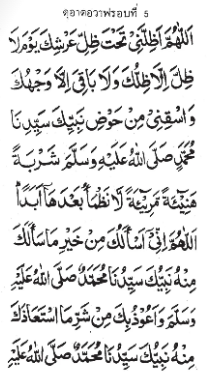 ดุอาตอวาฟรอบที่ 5
اَللّٰهُمَّ اَظِلَّنِيْ تَحْتَ ظِلِّ عَرْشِكَ يَوْمَ لَا
ظِلَّ اِلَّا ظِلُّكَ وَلَا بَاقِيَ اِلَّا وَجْهُكَ
وَاسْقِنِيْ مِنْ حَوْضِ نَبِيِّكَ سَيِّدِنَا
مُحَمَّدٍ صَلَّى اللهُ عَلَيْهِ وَسَلَّمَ شَرْبَةً
هَنِيْئَةً مَرِيْئَةً لَا نَظْمَأُ بَعْدَهَا اَبَدًا
اَللّٰهُمَّ اِنِّيْ اَسْأَلُكَ مِنْ خَيْرِ مَا سَأَلَكَ
مِنْهُ نَبِيُّكَ سَيِّدُنَا مُحَمَّدٌ صَلَّى اللهُ عَلَيْهِ
وَسَلَّمَ وَاَعُوْذُبِكَ مِنْ شَرِّ مَا اسْتَعَاذَكَ
مِنْهُ نَبِيُّكَ سَيِّدُنَا مُحَمَّدٌ صَلَّى اللهُ عَلَيْهِ